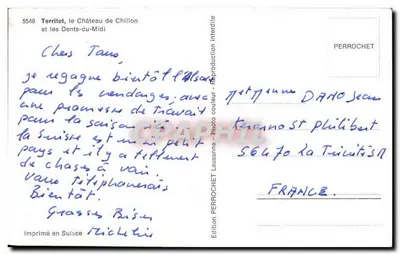 5546 Territet, le Château de Chillon
et les Dents-du-Midi
Chers Tous,
je regagne bientôt l'Alsace
pour les vendanges, avec
une promesse de travail
pour la saison
la Suisse est un petit
pays et il y a tellement
de choses à voir.
Vous téléphonerais
Bientôt.
Grosses Bises
Micheline
Imprimé en Suisse
Edition PERROCHET Lausanne - Photo couleur - Reproduction interdite
PERROCHET
Mr et Mme DANO Jean
St Philibert
56470 La Trinité s/M
FRANCE.